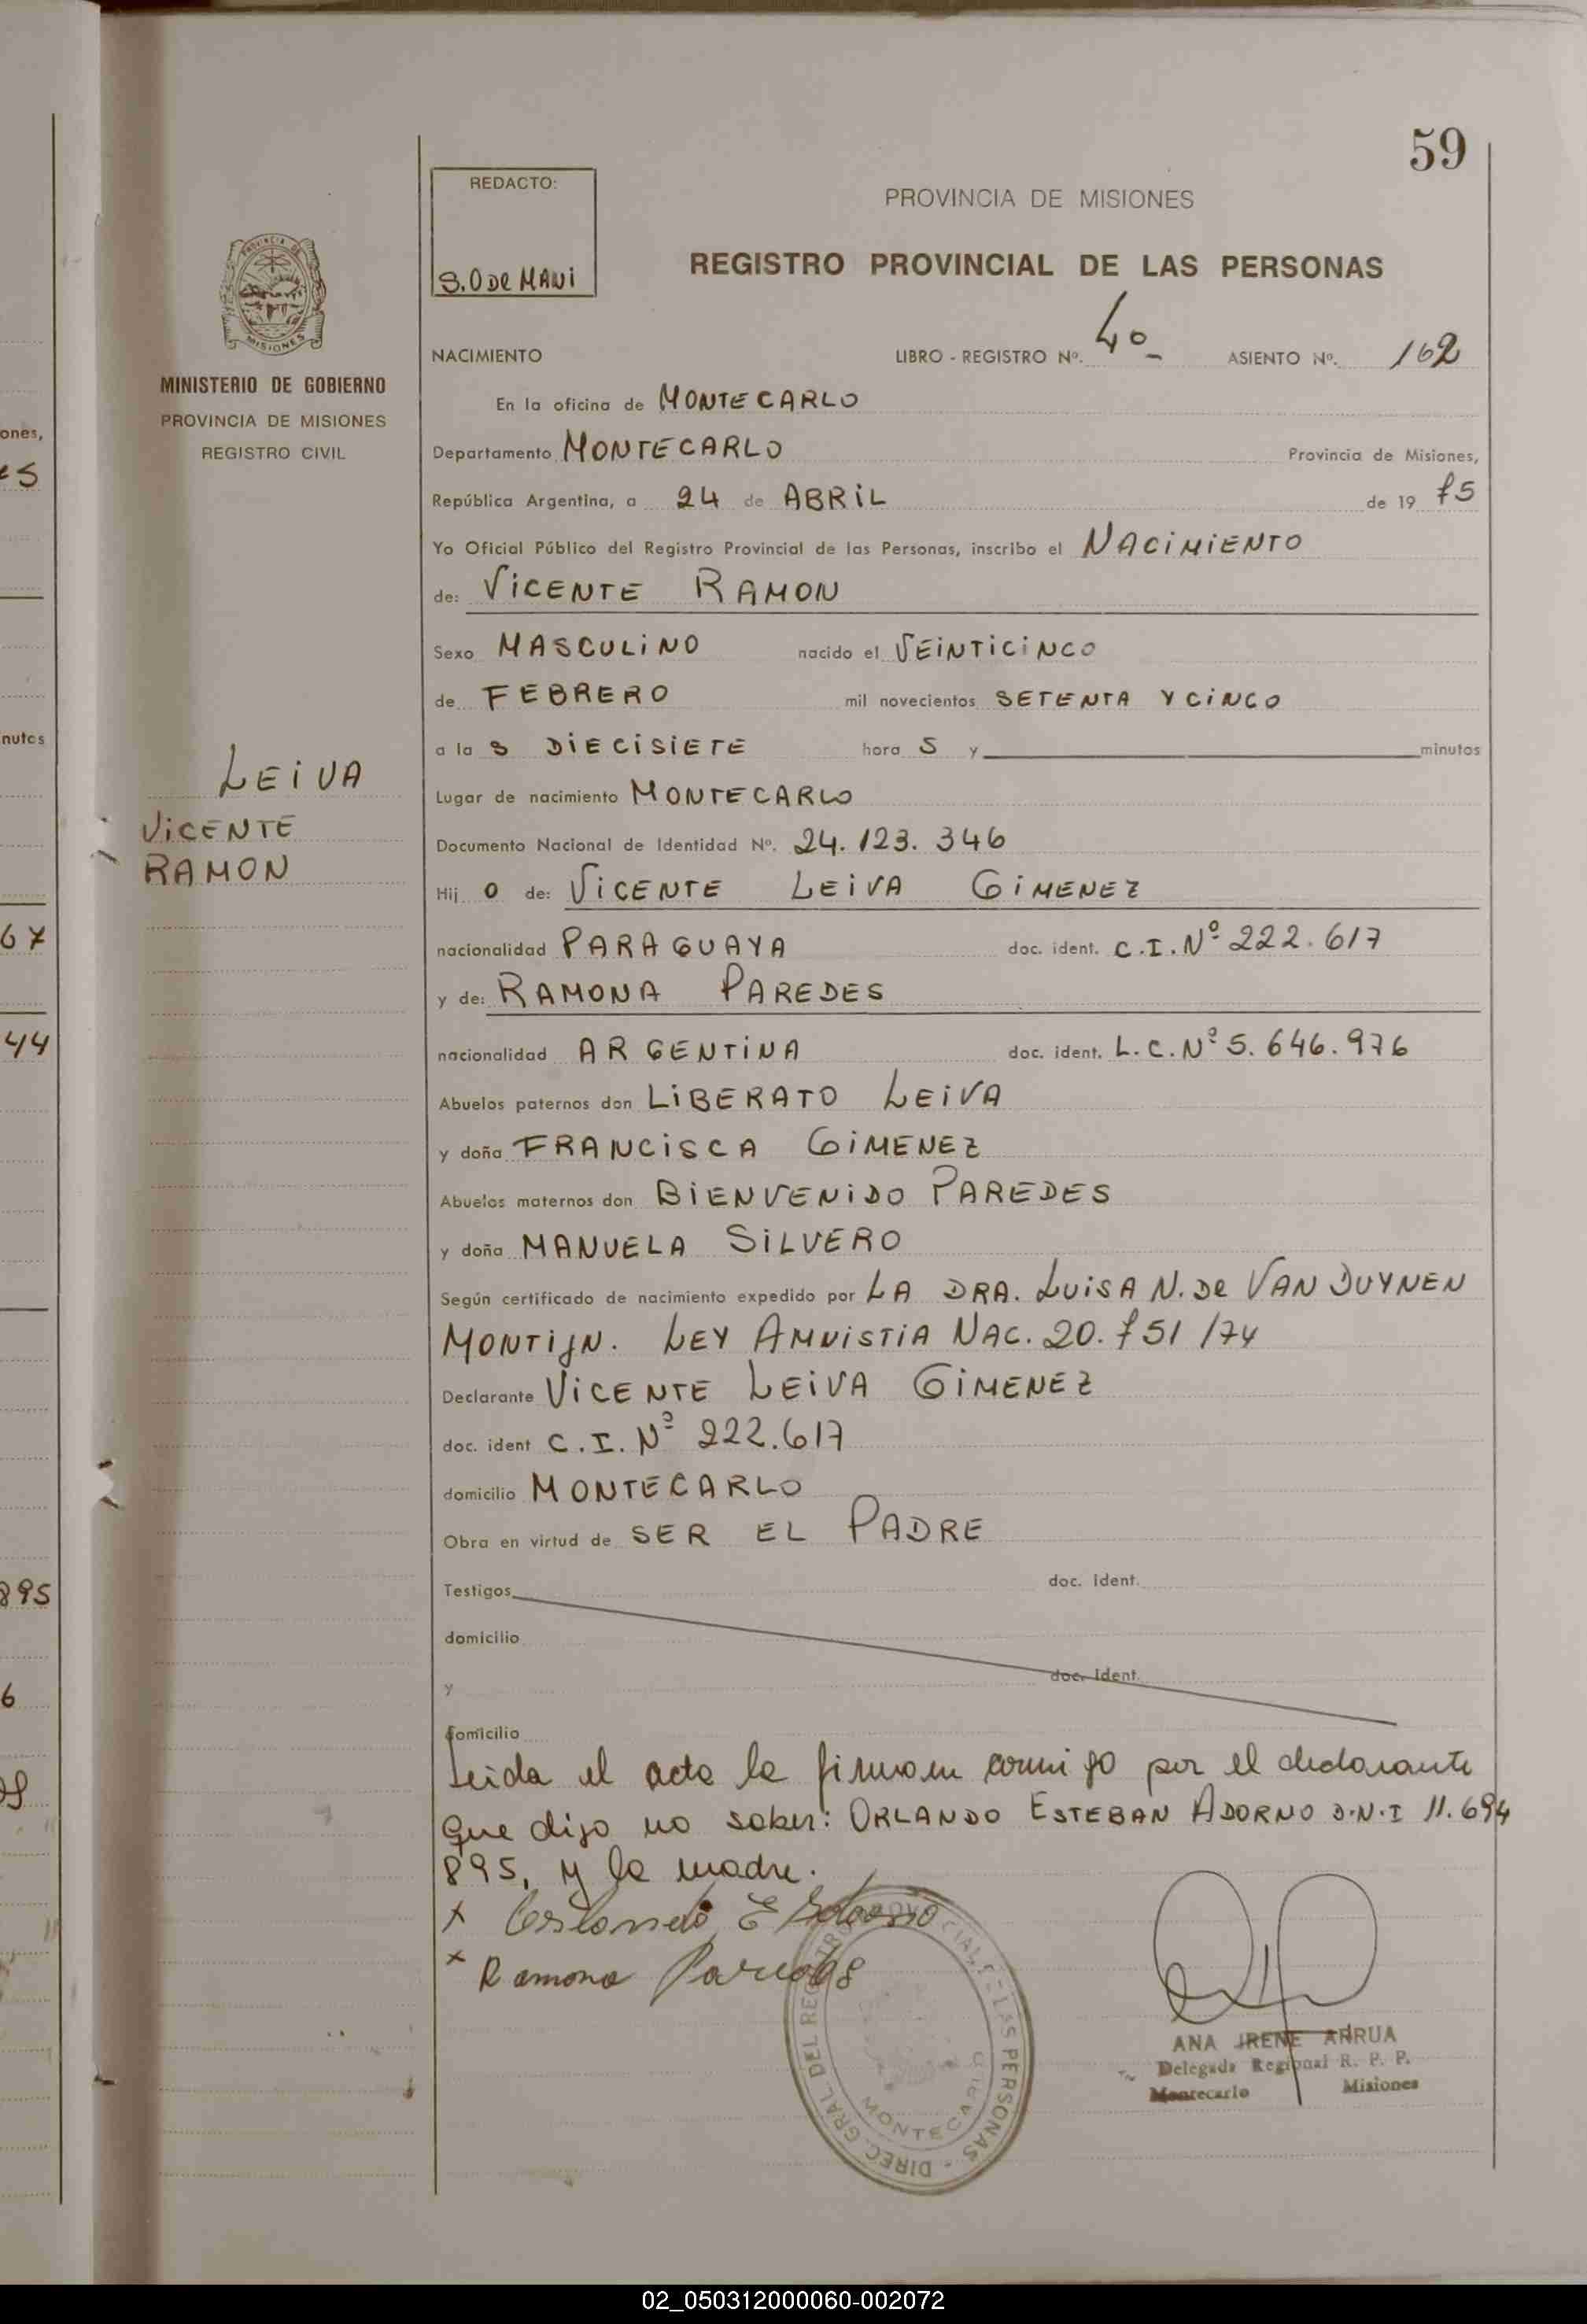 59
REDACTO:
S.O DE MAWI
PROVINCIA DE MISIONES
REGISTRO PROVINCIAL DE LAS PERSONAS
PROVINCIA DE
MISIONES
MINISTERIO DE GOBIERNO
PROVINCIA DE MISIONES
REGISTRO CIVIL
NACIMIENTO LIBRO - REGISTRO Nº. 4º ASIENTO Nº. 162
En la oficina de MONTECARLO
Departamento MONTECARLO Provincia de Misiones,
República Argentina, a 24 de ABRIL de 19 75
Yo Oficial Público del Registro Provincial de las Personas, inscribo el NACIMIENTO
de: VICENTE RAMON
Sexo MASCULINO nacido el VEINTICINCO
de FEBRERO mil novecientos SETENTA Y CINCO
a la S DIECISIETE hora S y minutos
LEIVA
VICENTE
RAMON
Lugar de nacimiento MONTECARLO
Documento Nacional de Identidad Nº. 24.123.346
Hij O de: VICENTE LEIVA GIMENEZ
nacionalidad PARAGUAYA doc. ident. C.I. Nº 222.617
y de: RAMONA PAREDES
nacionalidad ARGENTINA doc. ident. L.C. Nº 5.646.976
Abuelos paternos don LIBERATO LEIVA
y doña FRANCISCA GIMENEZ
Abuelos maternos don BIENVENIDO PAREDES
y doña MANUELA SILVERO
Según certificado de nacimiento expedido por LA DRA. LUISA N. DE VAN DUYNEN
MONTIJN. LEY AMNISTIA NAC. 20.751/74
Declarante VICENTE LEIVA GIMENEZ
doc. ident C.I. Nº 222.617
domicilio MONTECARLO
Obra en virtud de SER EL PADRE
Testigos doc. ident.
domicilio
y doc. ident.
domicilio
Leida el acta la firman conmigo por el declarante
que dijo no saber: ORLANDO ESTEBAN ADORNO D.N.I 11.694
895, y la madre.
x Orlando E Adorno
x Ramona Paredes
DIREC. GRAL DEL REG PROVINCIAL DE LAS PERSONAS
MONTECARLO
ANA IRENE ARRUA
Delegada Regional R. P. P.
Montecarlo Misiones
ones,
es
nutos
67
44
895
6
02_050312000060-002072